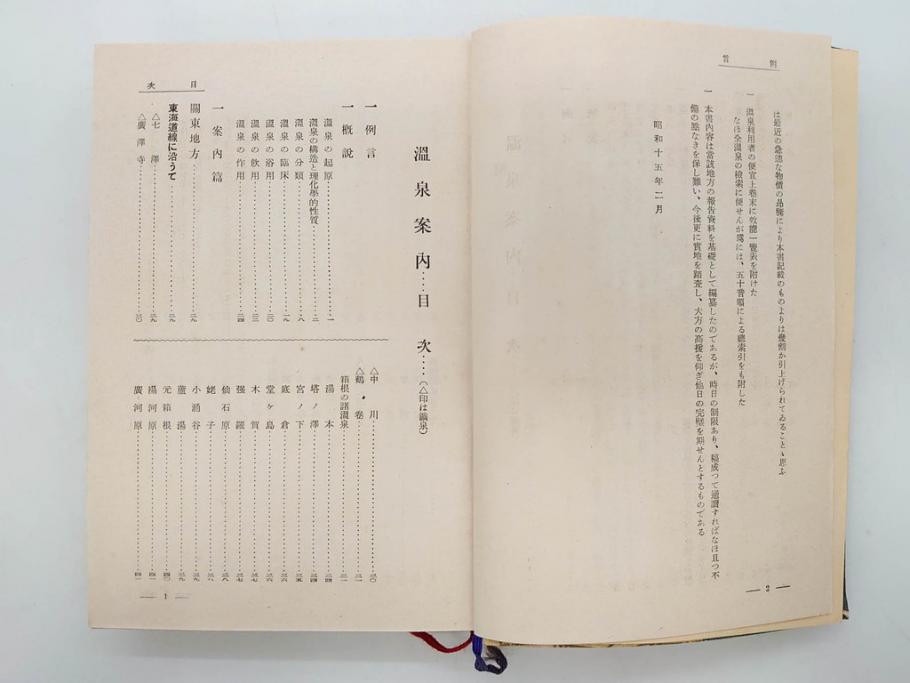 例言
は最近の急速な物價の昂騰により本書記載のものよりは幾割か引上げられてゐることゝ思ふ
一 溫泉利用者の便宜上卷末に效能一覽表を附けた
なほ全溫泉の檢索に便せんが爲には、五十音順による總索引をも附した
一 本書內容は當該地方の報告資料を基礎として編纂したのであるが、時日の制限あり、稿成つて通讀すればなほ且つ不
備の點なきを保し難い、今後更に實地を踏査し、大方の高援を仰ぎ他日の完璧を期せんとするものである
昭和十五年二月
— 2 —
目次
溫泉案內…目次……(△印は鑛泉)
一 例言
一 槪說
溫泉の起原……一
溫泉の構造と理化學的性質……二
溫泉の分類……八
溫泉の臨床……一九
溫泉の浴用……二〇
溫泉の飮用……二三
溫泉の作用……二四
一 案內篇
關東地方……二九
東海道線に沿うて……二九
△七澤……二九
△廣澤寺……三〇
△中川……三〇
△鶴卷……三一
箱根の諸溫泉……三一
湯本……三四
塔ノ澤……三四
宮ノ下……三五
底倉……三六
堂ヶ島……三六
木賀……三七
强羅……三七
仙石原……三八
姥子……三八
小涌谷……三九
蘆ノ湯……三九
元箱根……四〇
湯河原……四一
廣河原……四一
— 1 —